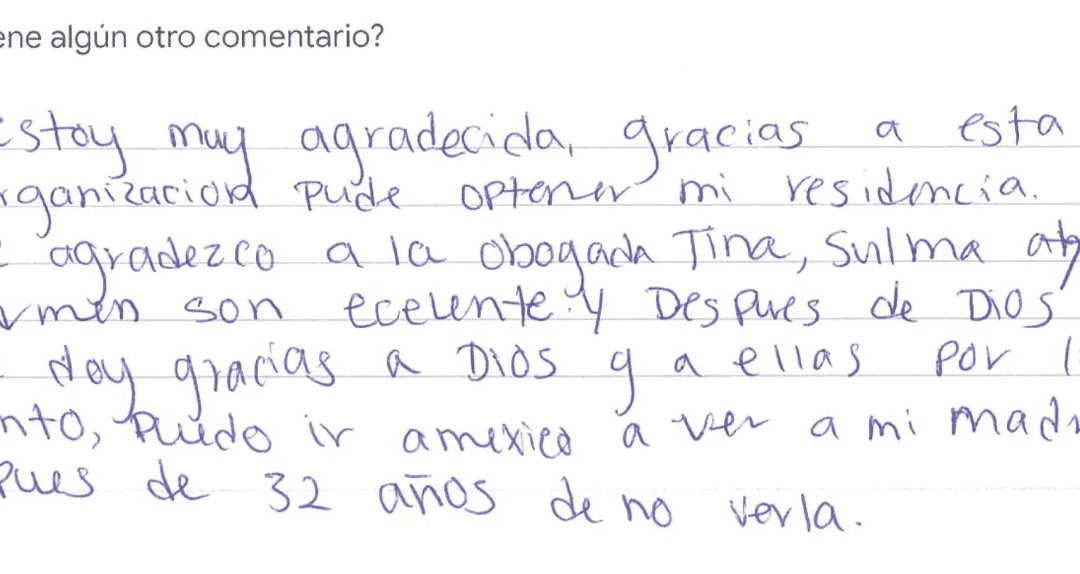 ene algún otro comentario?
Estoy muy agradecida, gracias a esta
rganizaciond pude optener mi residencia.
agradezco a la obogada Tina, Sulma
rmen son ecelente. y Despues de Dios
doy gracias a Dios y a ellas por l
nto, puedo ir amexico a ver a mi madr
pues de 32 años de no verla.